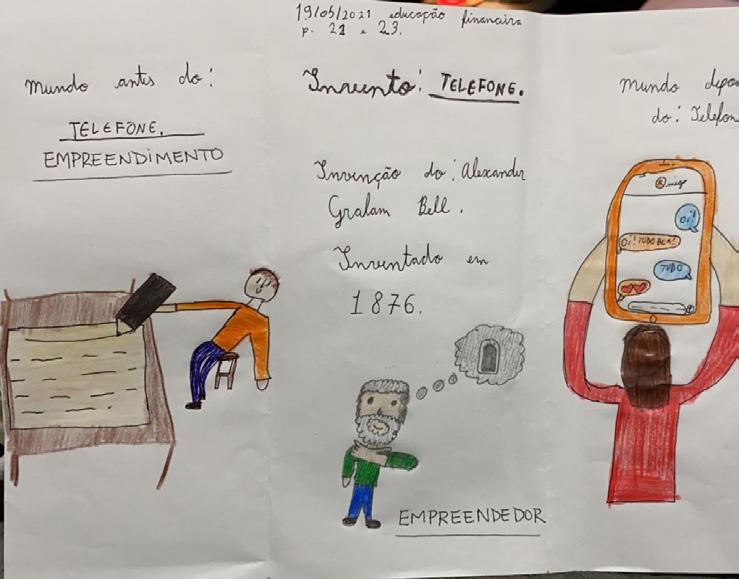 mundo antes do:
TELEFONE.
EMPREENDIMENTO
19/05/2021 educação financeira
p. 21 e 23.
Invento: TELEFONE.
Invenção do: Alexander
Gralam Bell.
Inventado em
1876.
EMPREENDEDOR
mundo
do: Telefon
@migo
Oi!
Oi! TUDO BEM?
TUDO